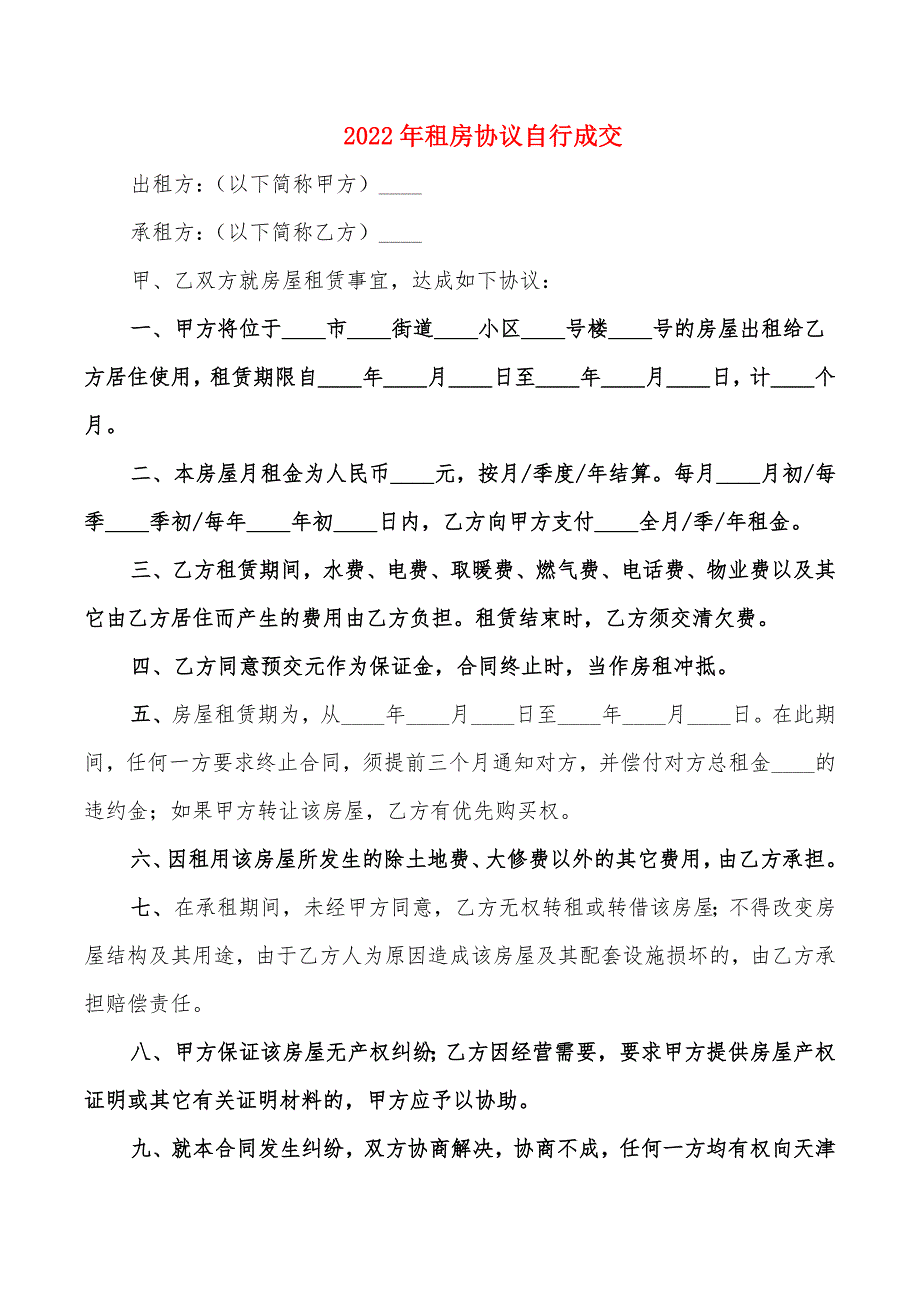 2022年租房协议自行成交
出租方：（以下简称甲方）____
承租方：（以下简称乙方）____
甲、乙双方就房屋租赁事宜，达成如下协议：
一、甲方将位于____市____街道____小区____号楼____号的房屋出租给乙
方居住使用，租赁期限自____年____月____日至____年____月____日，计____个
月。
二、本房屋月租金为人民币____元，按月/季度/年结算。每月____月初/每
季____季初/每年____年初____日内，乙方向甲方支付____全月/季/年租金。
三、乙方租赁期间，水费、电费、取暖费、燃气费、电话费、物业费以及其
它由乙方居住而产生的费用由乙方负担。租赁结束时，乙方须交清欠费。
四、乙方同意预交元作为保证金，合同终止时，当作房租冲抵。
五、房屋租赁期为，从____年____月____日至____年____月____日。在此期
间，任何一方要求终止合同，须提前三个月通知对方，并偿付对方总租金____的
违约金；如果甲方转让该房屋，乙方有优先购买权。
六、因租用该房屋所发生的除土地费、大修费以外的其它费用，由乙方承担。
七、在承租期间，未经甲方同意，乙方无权转租或转借该房屋；不得改变房
屋结构及其用途，由于乙方人为原因造成该房屋及其配套设施损坏的，由乙方承
担赔偿责任。
八、甲方保证该房屋无产权纠纷；乙方因经营需要，要求甲方提供房屋产权
证明或其它有关证明材料的，甲方应予以协助。
九、就本合同发生纠纷，双方协商解决，协商不成，任何一方均有权向天津